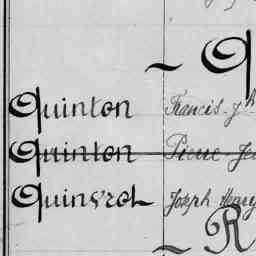 ~ Q
Quinton Francis J h
Quinton Pierre Je
Quinsrol Joseph Henry
~ R